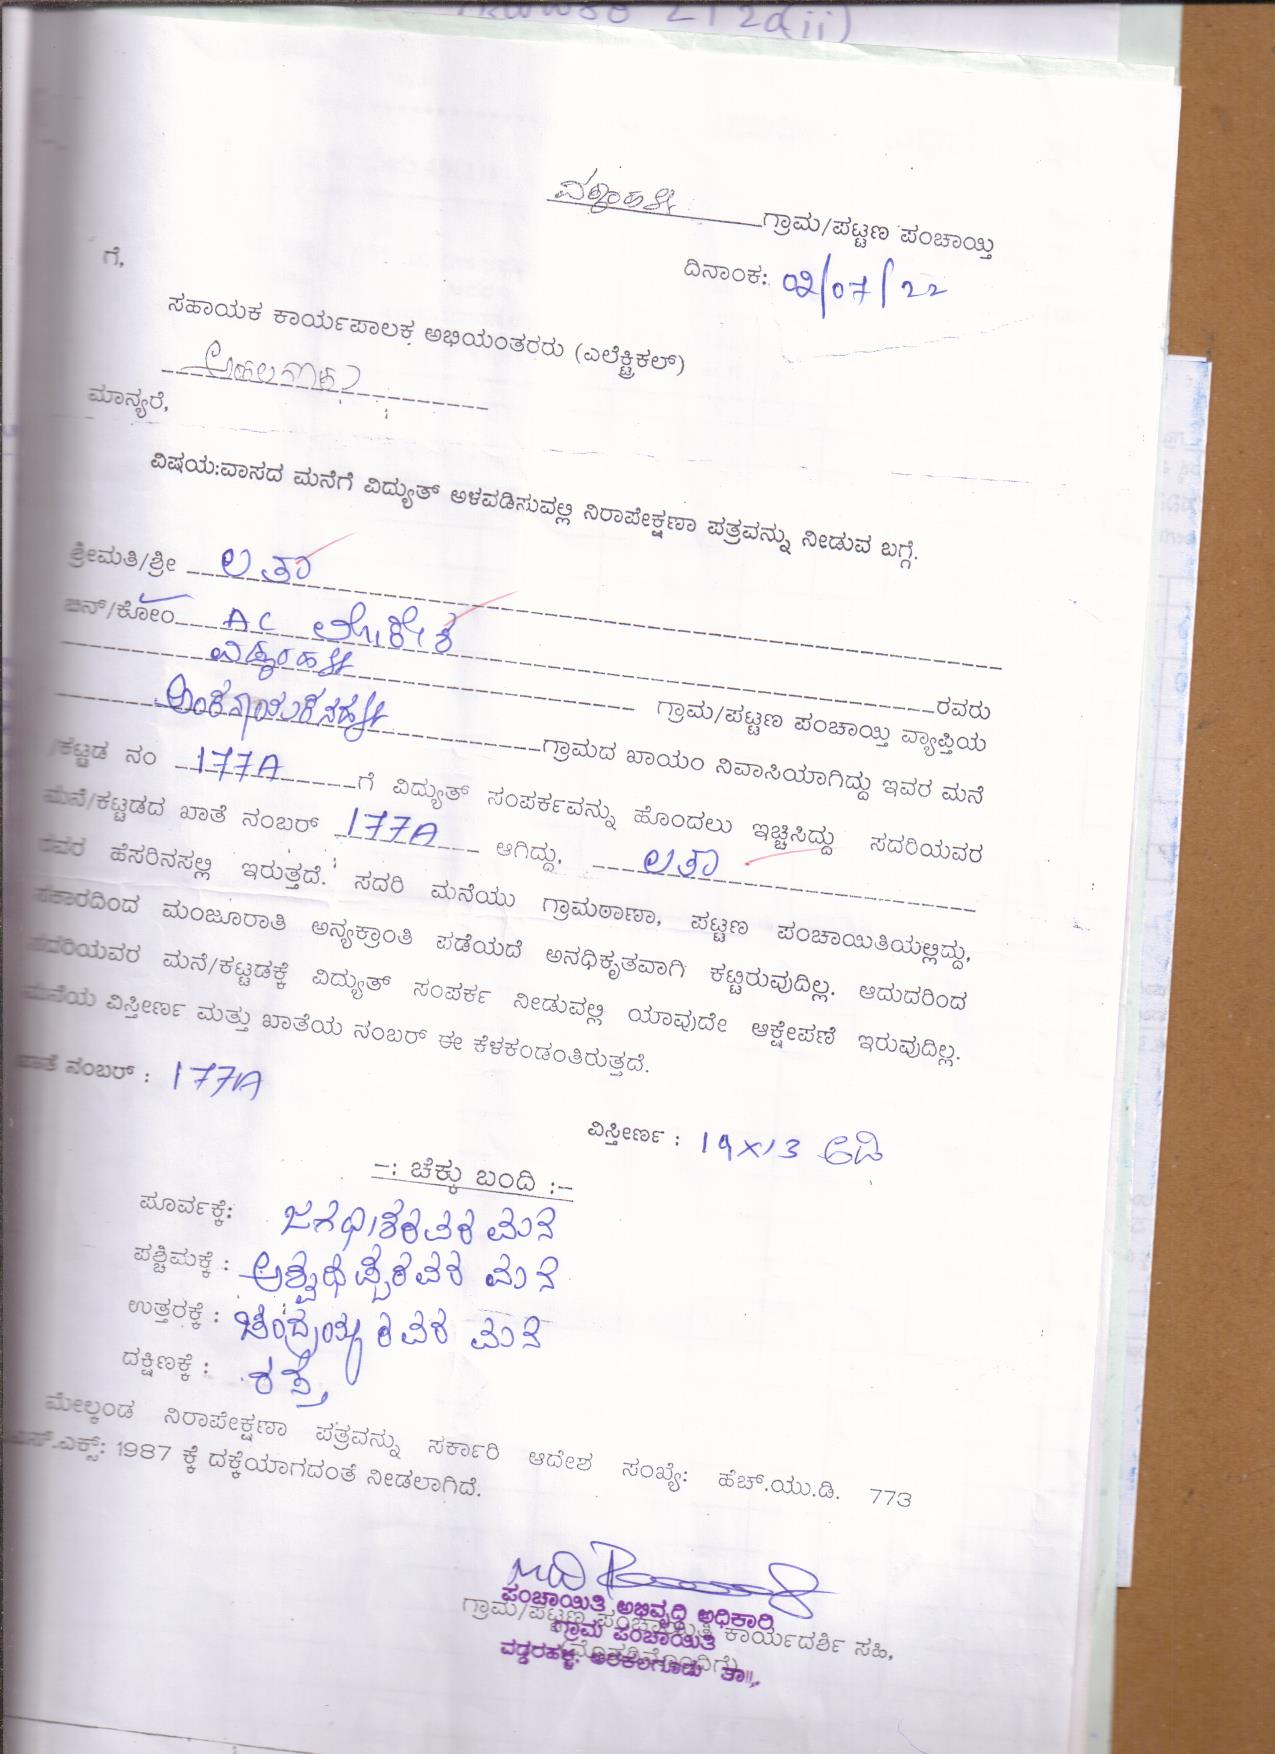 212d(ii)
ವಡ್ಡರಹಳ್ಳಿ ಗ್ರಾಮ/ಪಟ್ಟಣ ಪಂಚಾಯ್ತಿ
ದಿನಾಂಕ: 02/07/22
ಗೆ,
ಸಹಾಯಕ ಕಾರ್ಯಪಾಲಕ ಅಭಿಯಂತರರು (ಎಲೆಕ್ಟ್ರಿಕಲ್)
ಮಾನ್ಯರೆ,
ವಿಷಯ:ವಾಸದ ಮನೆಗೆ ವಿದ್ಯುತ್ ಅಳವಡಿಸುವಲ್ಲಿ ನಿರಾಪೇಕ್ಷಣಾ ಪತ್ರವನ್ನು ನೀಡುವ ಬಗ್ಗೆ.
ಶ್ರೀಮತಿ/ಶ್ರೀ ಲತಾ
ಬಿನ್/ಕೋಂ AC ಲೋಕೇಶ ರವರು
ವಡ್ಡರಹಳ್ಳಿ ಗ್ರಾಮ/ಪಟ್ಟಣ ಪಂಚಾಯ್ತಿ ವ್ಯಾಪ್ತಿಯ
ಅಂಕನಾಯಕನಹಳ್ಳಿ ಗ್ರಾಮದ ಖಾಯಂ ನಿವಾಸಿಯಾಗಿದ್ದು ಇವರ ಮನೆ
/ಕಟ್ಟಡ ನಂ 177A ಗೆ ವಿದ್ಯುತ್ ಸಂಪರ್ಕವನ್ನು ಹೊಂದಲು ಇಚ್ಚಿಸಿದ್ದು ಸದರಿಯವರ
ಮನೆ/ಕಟ್ಟಡದ ಖಾತೆ ನಂಬರ್ 177A ಆಗಿದ್ದು, ಲತಾ
ರವರ ಹೆಸರಿನಸಲ್ಲಿ ಇರುತ್ತದೆ. ಸದರಿ ಮನೆಯು ಗ್ರಾಮಠಾಣಾ, ಪಟ್ಟಣ ಪಂಚಾಯಿತಿಯಲ್ಲಿದ್ದು,
ಸಕಾರದಿಂದ ಮಂಜೂರಾತಿ ಅನ್ಯಕ್ರಾಂತಿ ಪಡೆಯದೆ ಅನಧಿಕೃತವಾಗಿ ಕಟ್ಟಿರುವುದಿಲ್ಲ. ಆದುದರಿಂದ
ಸದರಿಯವರ ಮನೆ/ಕಟ್ಟಡಕ್ಕೆ ವಿದ್ಯುತ್ ಸಂಪರ್ಕ ನೀಡುವಲ್ಲಿ ಯಾವುದೇ ಆಕ್ಷೇಪಣೆ ಇರುವುದಿಲ್ಲ.
ಮನೆಯ ವಿಸ್ತೀರ್ಣ ಮತ್ತು ಖಾತೆಯ ನಂಬರ್ ಈ ಕೆಳಕಂಡಂತಿರುತ್ತದೆ.
ಖಾತೆ ನಂಬರ್ : 177A
ವಿಸ್ತೀರ್ಣ : 19x13 ಅಡಿ
-: ಚೆಕ್ಕು ಬಂದಿ :-
ಪೂರ್ವಕ್ಕೆ: ಜಗಧೀಶರವರ ಮನೆ
ಪಶ್ಚಿಮಕ್ಕೆ : ಅಶ್ವಥಪ್ಪರವರ ಮನೆ
ಉತ್ತರಕ್ಕೆ : ಚಂದ್ರಯ್ಯರವರ ಮನೆ
ದಕ್ಷಿಣಕ್ಕೆ : ರಸ್ತೆ
ಮೇಲ್ಕಂಡ ನಿರಾಪೇಕ್ಷಣಾ ಪತ್ರವನ್ನು ಸರ್ಕಾರಿ ಆದೇಶ ಸಂಖ್ಯೆ: ಹೆಚ್.ಯು.ಡಿ. 773
ಎಸ್.ಎಕ್ಸ್: 1987 ಕ್ಕೆ ದಕ್ಕೆಯಾಗದಂತೆ ನೀಡಲಾಗಿದೆ.
ಪಂಚಾಯಿತಿ ಅಭಿವೃದ್ಧಿ ಅಧಿಕಾರಿ
ಗ್ರಾಮ/ಪಟ್ಟಣ ಪಂಚಾಯಿತಿ ಕಾರ್ಯದರ್ಶಿ ಸಹಿ,
ಗ್ರಾಮ ಪಂಚಾಯಿತಿ
(ಮೊಹರಿನೊಂದಿಗೆ)
ವಡ್ಡರಹಳ್ಳಿ, ಅರಕಲಗೂಡು ತಾ||.